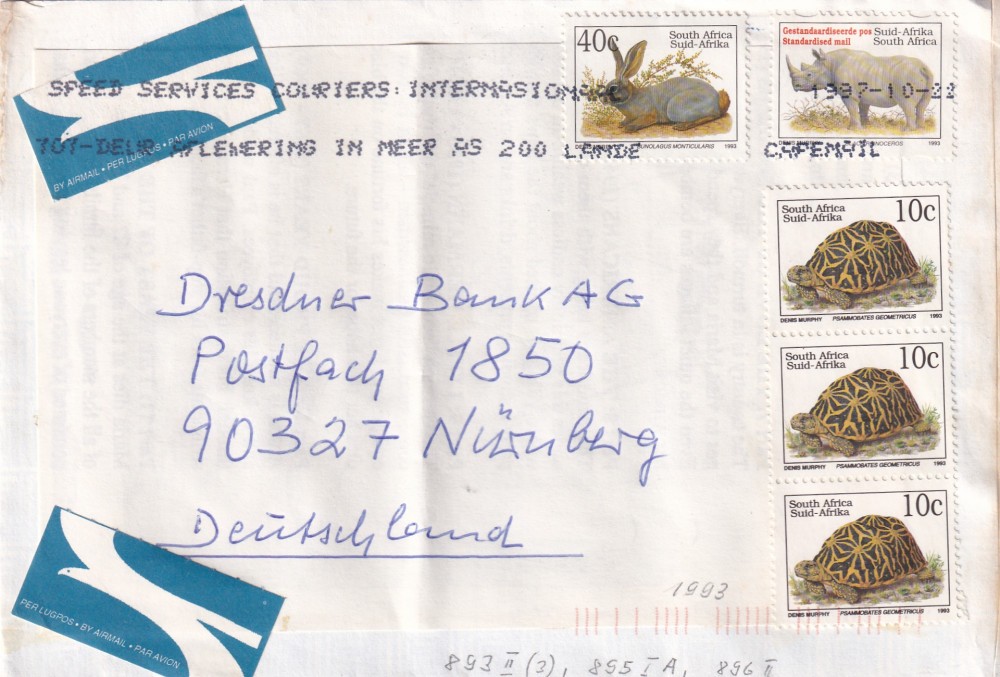 SPEED SERVICES COURIERS: INTERNASIONALE
1997-10-22
TOT-DEUR AFLEWERING IN MEER AS 200 LANDE
CAPEMAIL
BY AIRMAIL • PER LUGPOS • PAR AVION
40c South Africa
Suid-Afrika
BUNOLAGUS MONTICULARIS 1993
Gestandaardiseerde pos Suid-Afrika
Standardised mail South Africa
DENIS MURPHY 1993
South Africa 10c
Suid-Afrika
DENIS MURPHY PSAMMOBATES GEOMETRICUS 1993
South Africa 10c
Suid-Afrika
DENIS MURPHY PSAMMOBATES GEOMETRICUS 1993
South Africa 10c
Suid-Afrika
DENIS MURPHY PSAMMOBATES GEOMETRICUS 1993
Dresdner Bank AG
Postfach 1850
90327 Nürnberg
Deutschland
PER LUGPOS • BY AIRMAIL • PAR AVION
1993
893 II (3), 895 I A, 896 II